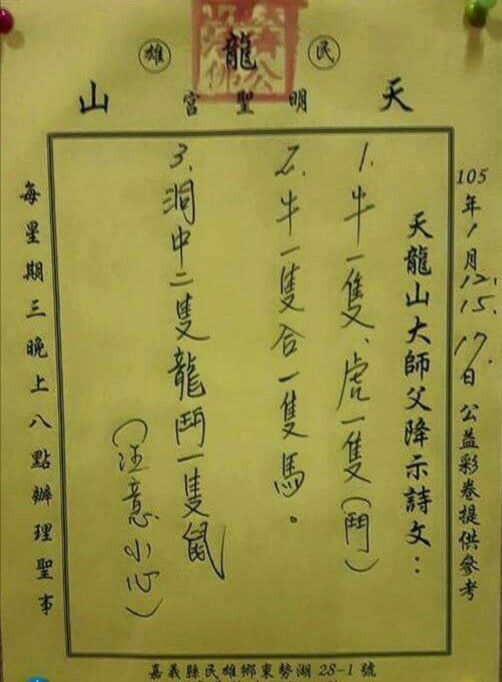 民 龍 雄
天 山
明聖宮
105年1月12.15.17.日 公益彩卷提供參考
天龍山大師父降示詩文：
1. 牛一隻、虎一隻（鬥）
2. 牛一隻合一隻馬。
3. 洞中二隻龍鬥一隻鼠
（注意小心）
每星期三晚上八點辦理聖事
嘉義縣民雄鄉東勢湖28-1號